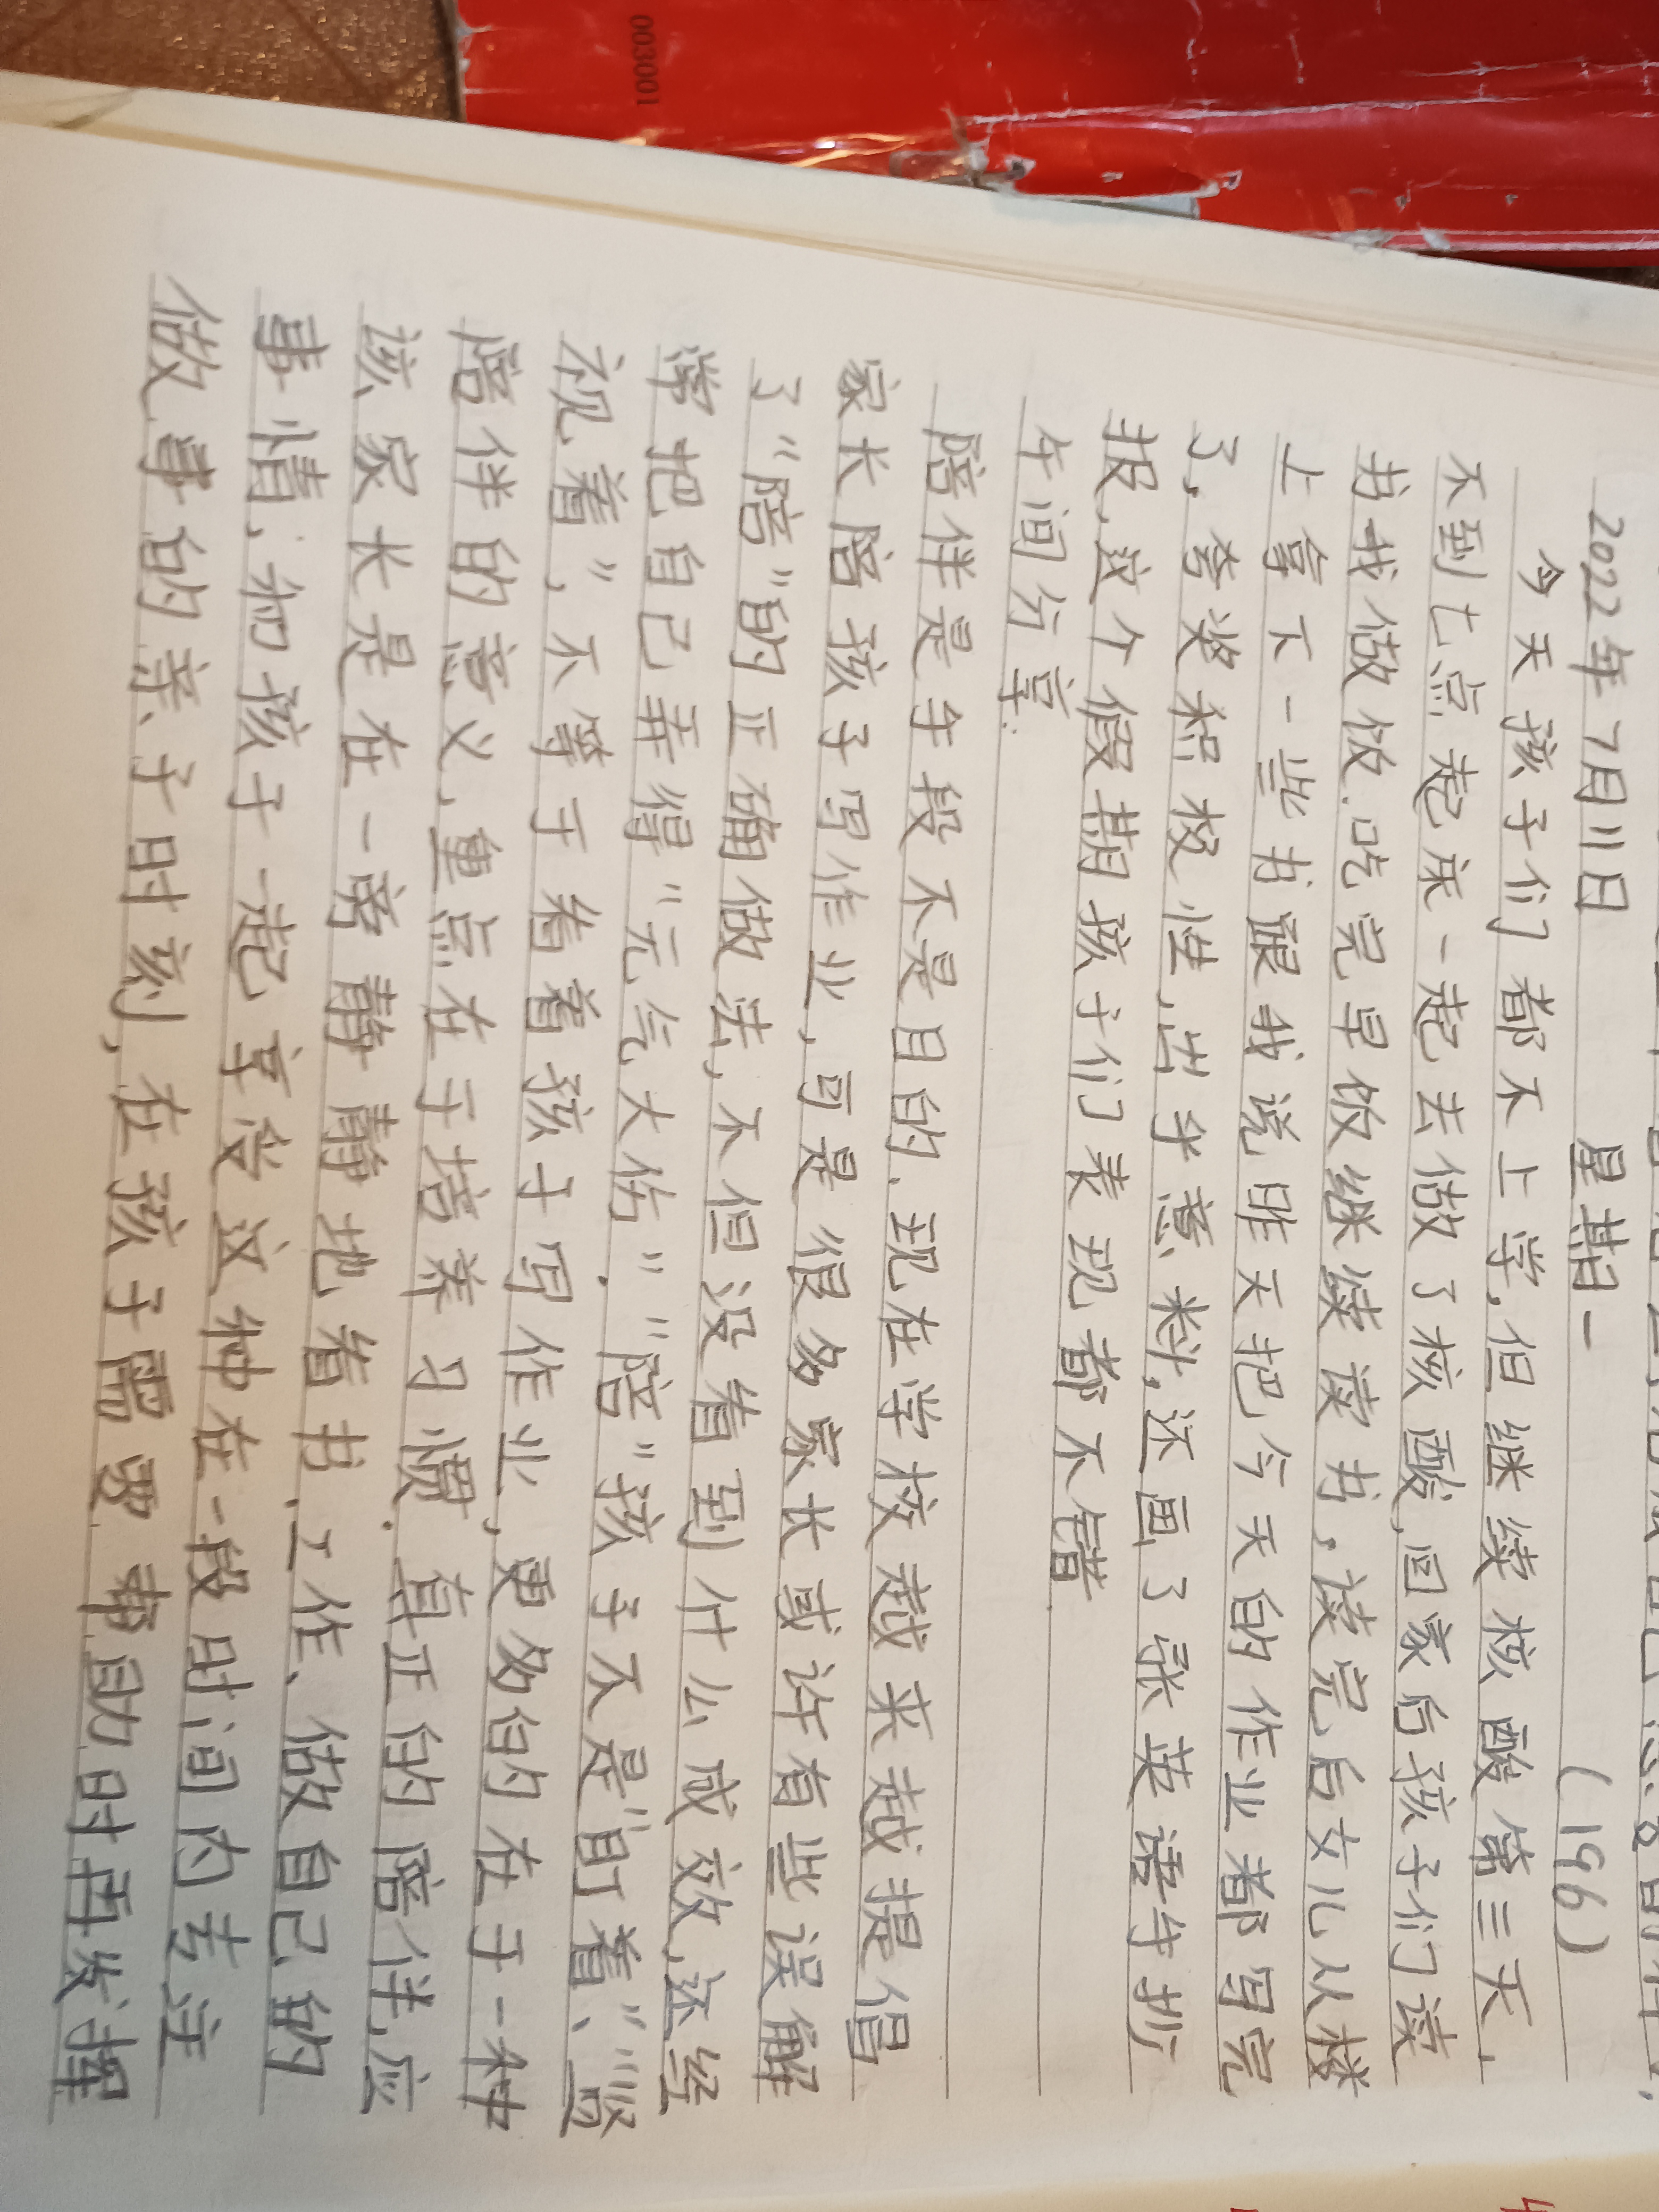 003001
2022年7月11日 星期一 (196)
今天孩子们都不上学,但继续核酸第三天,
不到七点起床一起去做了核酸,回家后孩子们读
书我做饭.吃完早饭继续读书,读完后女儿从楼
上拿下一些书跟我说昨天把今天的作业都写完
了,夸奖积极性,出乎意料,还画了张英语手抄
报,这个假期孩子们表现都不错.
午间分享:
陪伴是手段不是目的.现在学校越来越提倡
家长陪孩子写作业,可是很多家长或许有些误解
了“陪”的正确做法,不但没看到什么成效,还经
常把自己弄得“元气大伤”.“陪”孩子不是“盯着”、“监
视着”,不等于看着孩子写作业,更多的在于一种
陪伴的意义,重点在于培养习惯.真正的陪伴,应
该家长是在一旁静静地看书、工作、做自己的
事情,和孩子一起享受这种在一段时间内专注
做事的亲子时刻,在孩子需要帮助时再发挥